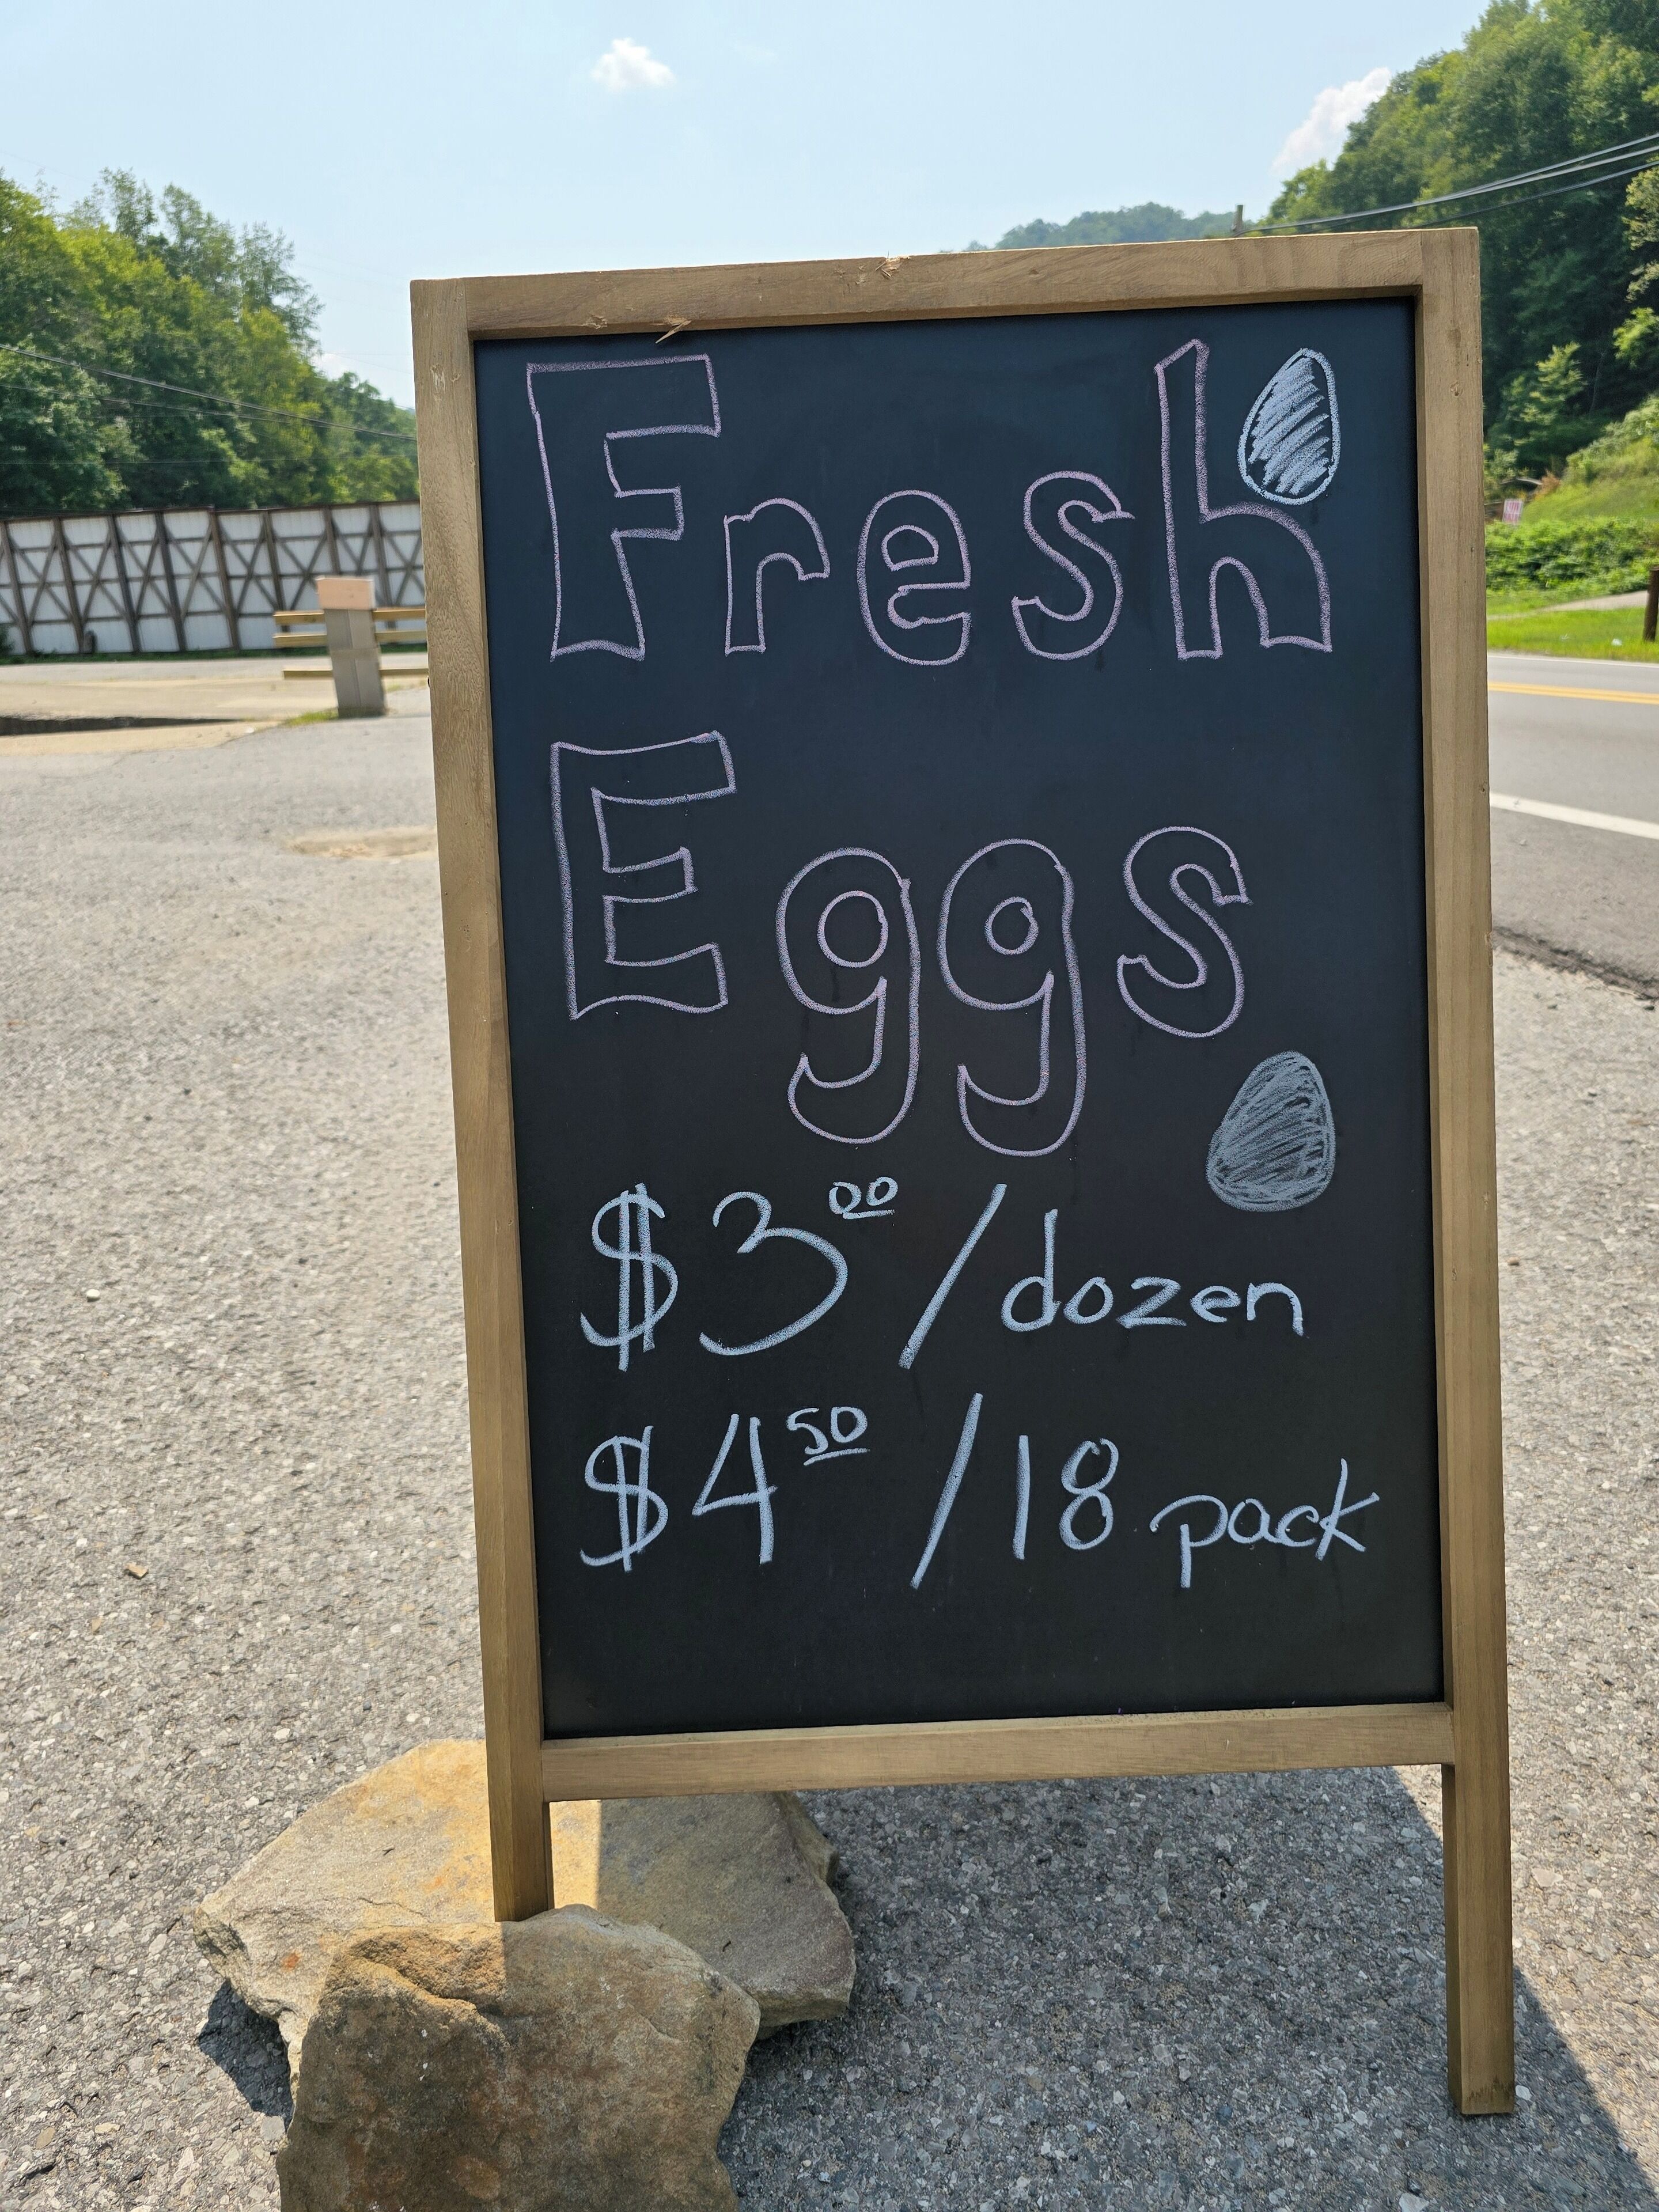 Fresh
Eggs
$3.00/dozen
$4.50/18 pack